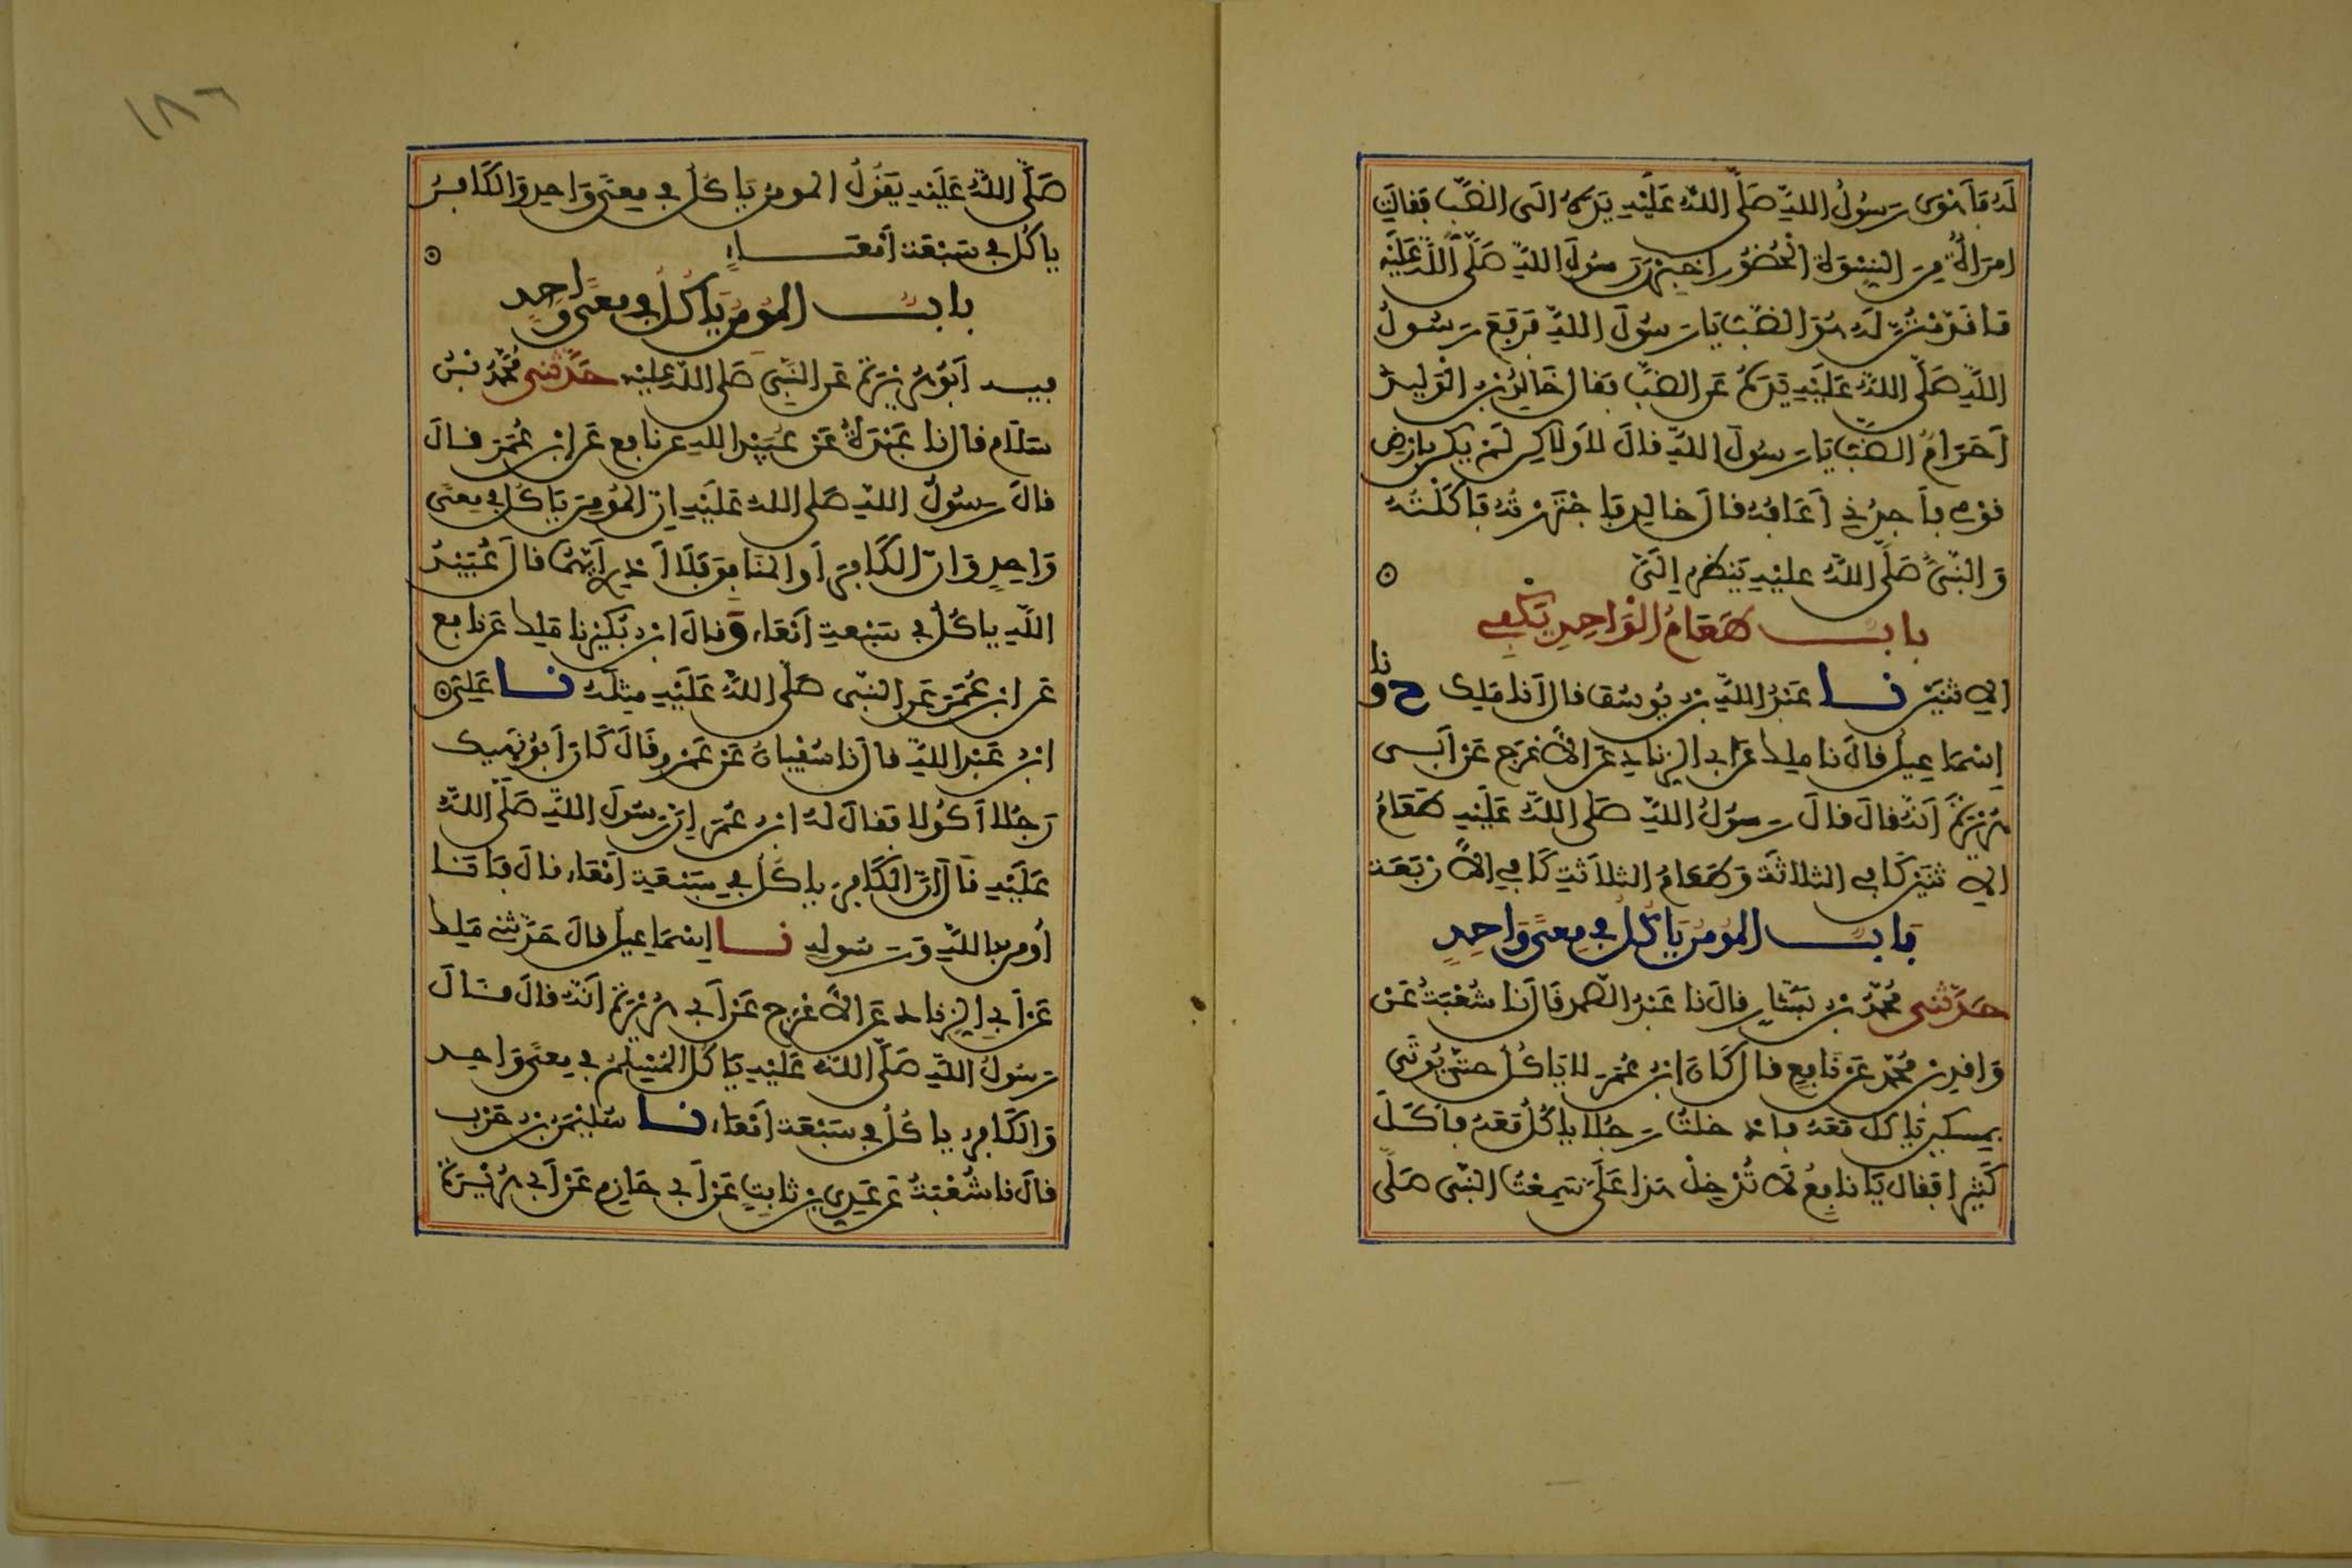 لَهُ فَأَهْوَى رَسُولُ اللهِ صَلَّى اللهُ عَلَيْهِ يَدَهُ الَى الضَّبِّ فَقَالَتِ
امرَأَةٌ مِنَ النِّسْوَةِ الْحُضُورِ اخْبِرْنَ رَسُولَ اللهِ صَلَّى اللهُ عَلَيْهِ
مَا قَدَّمْتُنَّ لَهُ هُوَ الضَّبُّ يَا رَسُولَ اللهِ فَرَفَعَ رَسُولُ
اللهِ صَلَّى اللهُ عَلَيْهِ يَدَهُ عَنِ الضَّبِّ فَقَالَ خَالِدُ بْنُ الْوَلِيدِ
أَحَرَامٌ الضَّبُّ يَا رَسُولَ اللهِ قَالَ لَا وَلَاكِنْ لَمْ يَكُن بِأَرْضِ
قَوْمِي فَأَجِدُنِي أَعَافُهُ قَالَ خَالِد فَاجْتَرَرْتُهُ فَأَكَلْتُهُ
وَالنَّبِيُّ صَلَّى اللهُ عليْهِ يَنظُرُ إِلَيَّ
بابُ طَعَامُ الْوَاحِدِ يَكْفِي
الِاثْنَيْنِ نا عَبْدُ اللهِ بْنُ يُوسُفَ قال أَنا مَلِك ح ونا
إِسْمَاعِيلُ قالَ نا ملك عَن ابي الزِنادِ عَنِ الأَعْرَجِ عَنْ أَبِي
هُرَيْرَةَ أَنَّهُ قالَ قالَ رَسُولُ اللهِ صَلى اللهُ عَلَيْهِ طَعَامُ
الِاثْنَيْنِ كَافِي الثلاثَةِ وَطَعَامُ الثلَاثَةِ كَافِي الأَرْبَعَةِ
بَابُ المُومِنُ يَأْكُلُ فِي مِعًى وَاحِدٍ
حَدَّثَنِي مُحَمَّدُ بْنُ بَشَّارٍ قالَ نا عَبْدُ الصَّمد قَالَ نا شُعْبَةُ عَنْ
وَاقِدِ بْنِ مُحَمَّدٍ عَنْ نَافِعٍ قال كَانَ ابْنُ عُمَرَ لا يَأكُلُ حتّى يُوتَى
بِمِسكِينٍ يَأكل مَعَهُ فادخلتُ رَجُلا يأكُلُ مَعَهُ فأَكَلَ
كَثِيرًا فَقال يَا نافِعُ لَا تُدْخِلْ هٰذا عَلَيَّ سَمِعْتُ النَّبِيَّ صَلَّى
١٨٦
صَلَّى اللهُ عَلَيْهِ يَقُولُ المومنُ يَاكُلُ في مِعًى وَاحِدٍ وَالْكَافِرُ
ياكُل في سَبْعَةِ أَمْعَاءٍ
بابُ المُومِنُ يَأكُلُ في مِعًى وَاحِدٍ
فيه أَبُو هُرَيْرَةَ عَنِ النَّبِيِّ صَلى اللهُ عليْهِ حَدَّثَنِي مُحَمَّدُ بْنُ
سَلَام قال انا عَبْدَةُ عَنْ عُبَيْدِ اللهِ عن نافِعٍ عَنِ ابْنِ عُمَرَ قالَ
قالَ رَسُولُ اللهِ صَلى الله عَلَيْهِ إِنَّ المُومِنَ يَاكُلُ في مِعًى
وَاحِدٍ وَانَّ الْكَافِرَ أَو المنَافِقَ فَلَا أَدْرِي أَيَّهُمَا قالَ عُبَيْدُ
اللهِ ياكُلُ في سَبْعةِ أَمْعَاءٍ وَقالَ ابْنُ بُكَيْرٍ نا مَلِك عَن نافِعٍ
عَن ابْنِ عُمَرَ عَنِ النَّبِي صَلَّى اللهُ عَلَيْهِ مِثْلَهُ نا عَلِيُّ
ابْنُ عَبْدِ اللهِ قال نا سُفْيَانُ عَنْ عَمْرٍو قَالَ كَانَ أَبُو نَهِيك
رَجُلا أَكُولا فَقالَ لَهُ ابْنُ عُمَرَ إِنَّ رَسُولَ اللهِ صَلَّى اللهُ
عَلَيْهِ قَالَ إِنَّ الْكَافِرَ يأكُلُ في سَبْعَةِ أَمْعَاءٍ قالَ فَأَنَا
أُومِنُ باللهِ وَرَسُولِهِ نا إِسْمَاعِيلُ قالَ حَدَّثَنِي مَلِك
عَنْ أَبِي الزِنادِ عَنِ الأَعْرَجِ عَنْ أَبِي هُرَيْرَةَ أَنَّهُ قالَ قَالَ
رَسُولُ اللهِ صَلَّى اللهُ عَلَيْهِ يَاكُلُ المُسْلِمُ في مِعًى وَاحِدٍ
وَالكَافِرُ ياكُلُ في سَبْعَةِ أَمْعَاءٍ نا سُلَيْمَنُ بْنُ حَرْبٍ
قالَ نا شُعْبَةُ عَن عَدِيِّ بْنِ ثابِتٍ عَنْ أَبِي حَازِمٍ عَنْ أَبِي هُرَيْرَةَ